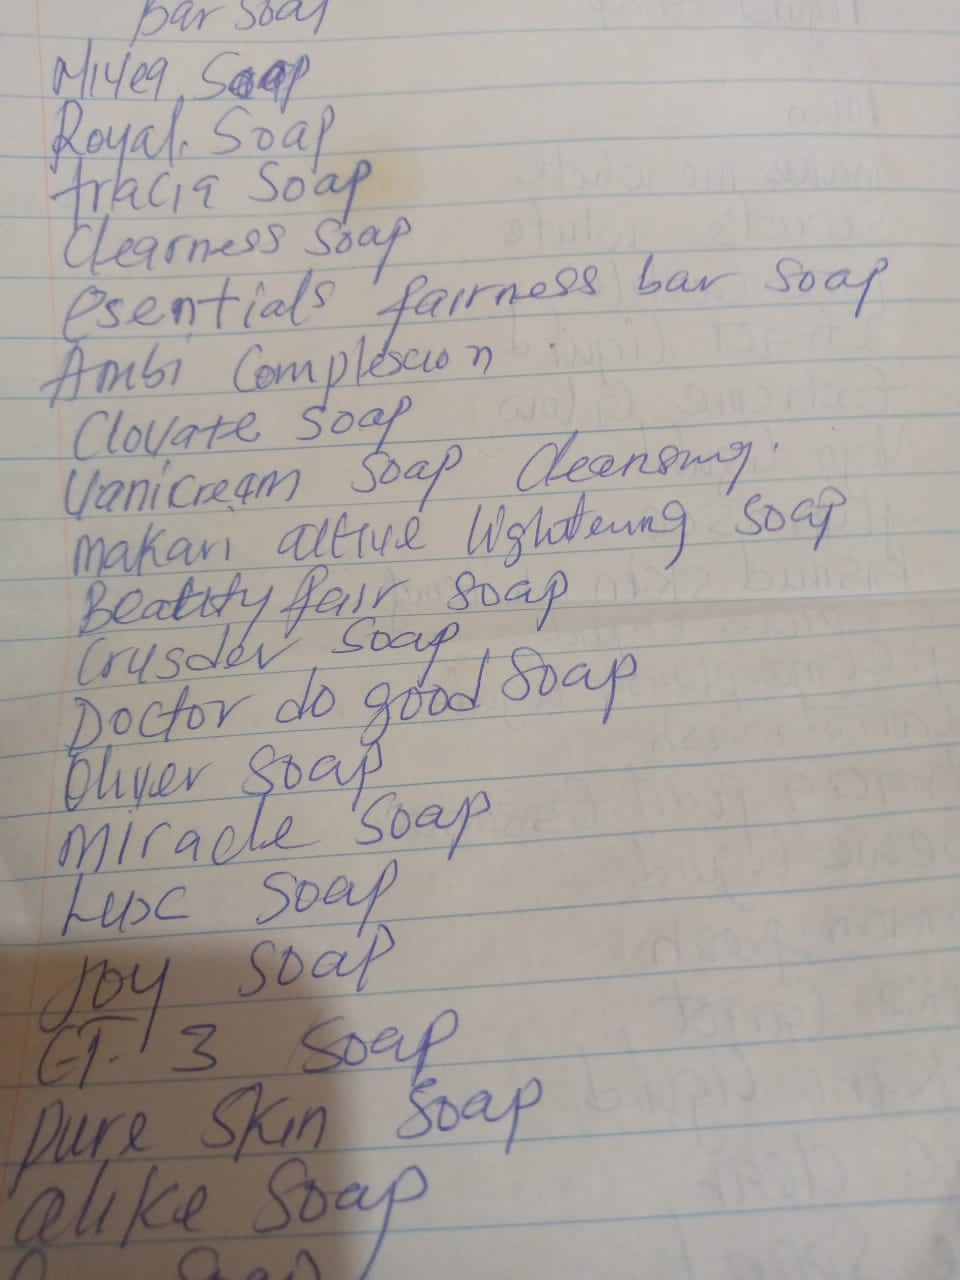 Bar Soap
Miyea Soap
Royal. Soap
tracia Soap
Clearness Soap
esentials fairness bar soap
Ambi Complexion
Clovate Soap
Vanicream Soap Cleansing.
makari active lightening Soap
Beauty fair Soap
Crusder Soap
Doctor do good Soap
Oliver Soap
Miracle Soap
Lux Soap
Joy Soap
GT. 3 Soap
pure Skin Soap
alike Soap
Soap